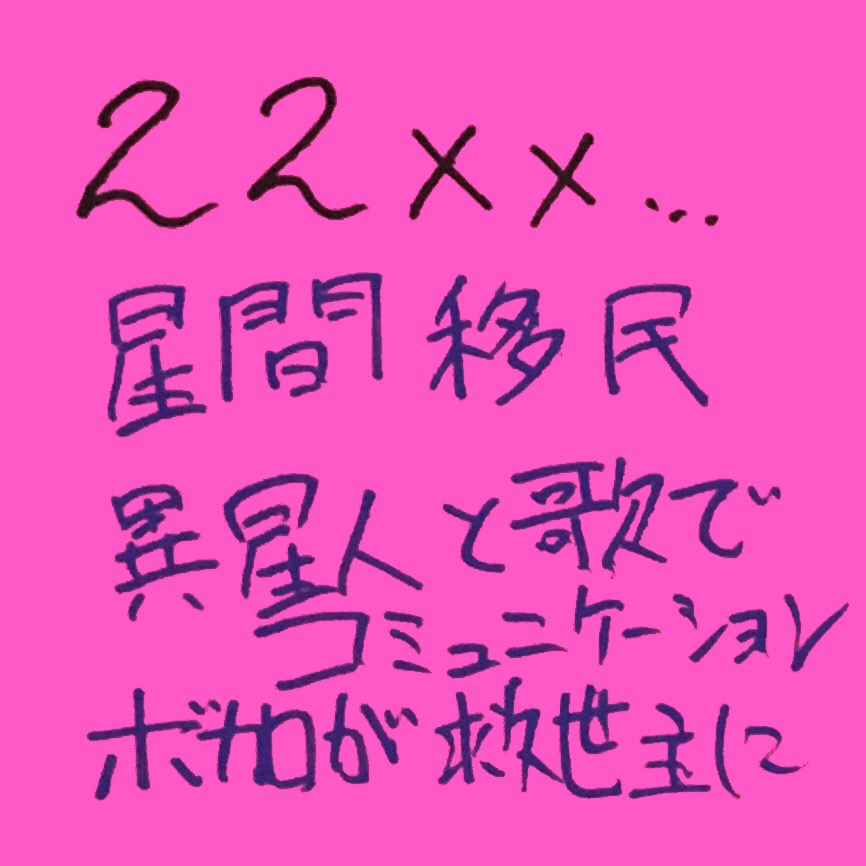 22xx...
星間移民
異星人と歌で
コミュニケーション
ボカロが救世主に